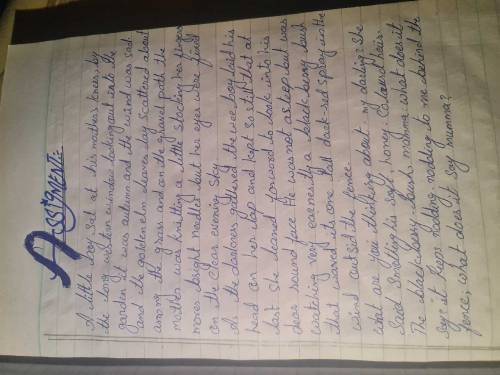 ASSIGNMENT:-
A little boy sat at his mother knees, by
the long western window looking out into the
garden. It was autumn and the wind was sad:
and the golden elm leaves lay scattered about
among the grass and on the gravel path. The
mother was knitting a little stocking her fingers
moved bright needles but her eyes were fixed
on the clear evening sky
As the darkness gathered the wee boy laid his
head on her lap and kept so still that at
last she leaned forword to look into his
dear round face. He was not asleep but was
watching very earnestly a black beary bush
that waved its one tall dark-red spray in the
wind outside the fence.
what are you thinking about my darling? she
said smoothing his soft, honey coloured hair.
The blackberry-bush, mamma: what does it
say: it keeps nodding nodding to me behind the
fence, what does it say mumma?